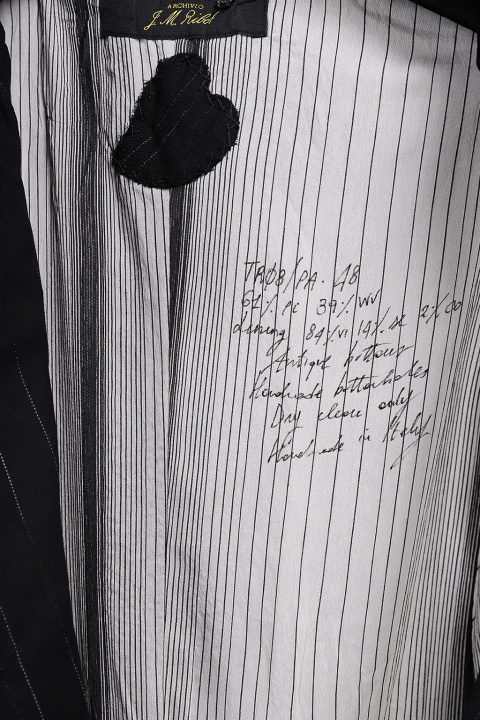 ARCHIVIO
J. M. Ribot
TRØ8/PA. 48
61% PC 39% WV
Lining 84% VI 14% SE 2% CO
Antique buttons
Handmade buttonholes
Dry clean only
Handmade in Italy